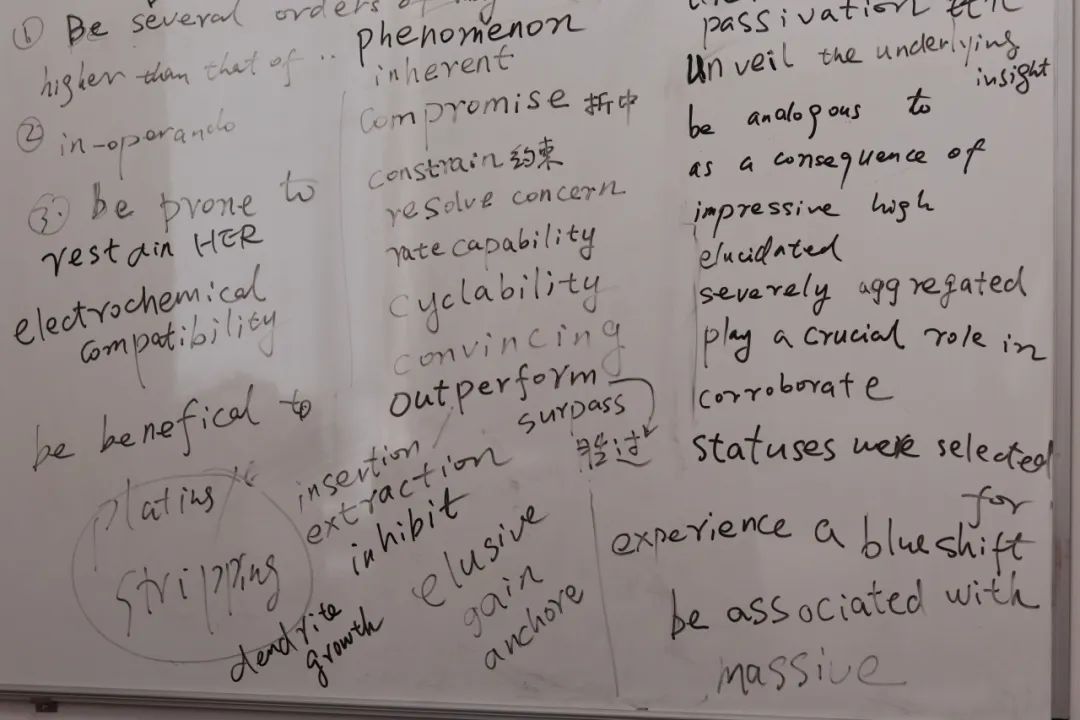 ① Be several orders of
higher than that of ..
② in-operando
③. be prone to
restain HER
electrochemical
compatibility
be benefical to
plating
stripping
phenomenon
inherent
compromise 折中
constrain 约束
resolve concern
rate capability
cyclability
convincing
outperform
surpass
insertion
extraction
inhibit
dendrite
growth
elusive
gain
anchore
passivation
unveil the underlying
insight
be analogous to
as a consequence of
impressive high
elucidated
severely aggregated
play a crucial role in
corroborate
statuses were selected
for
experience a blueshift
be associated with
massive